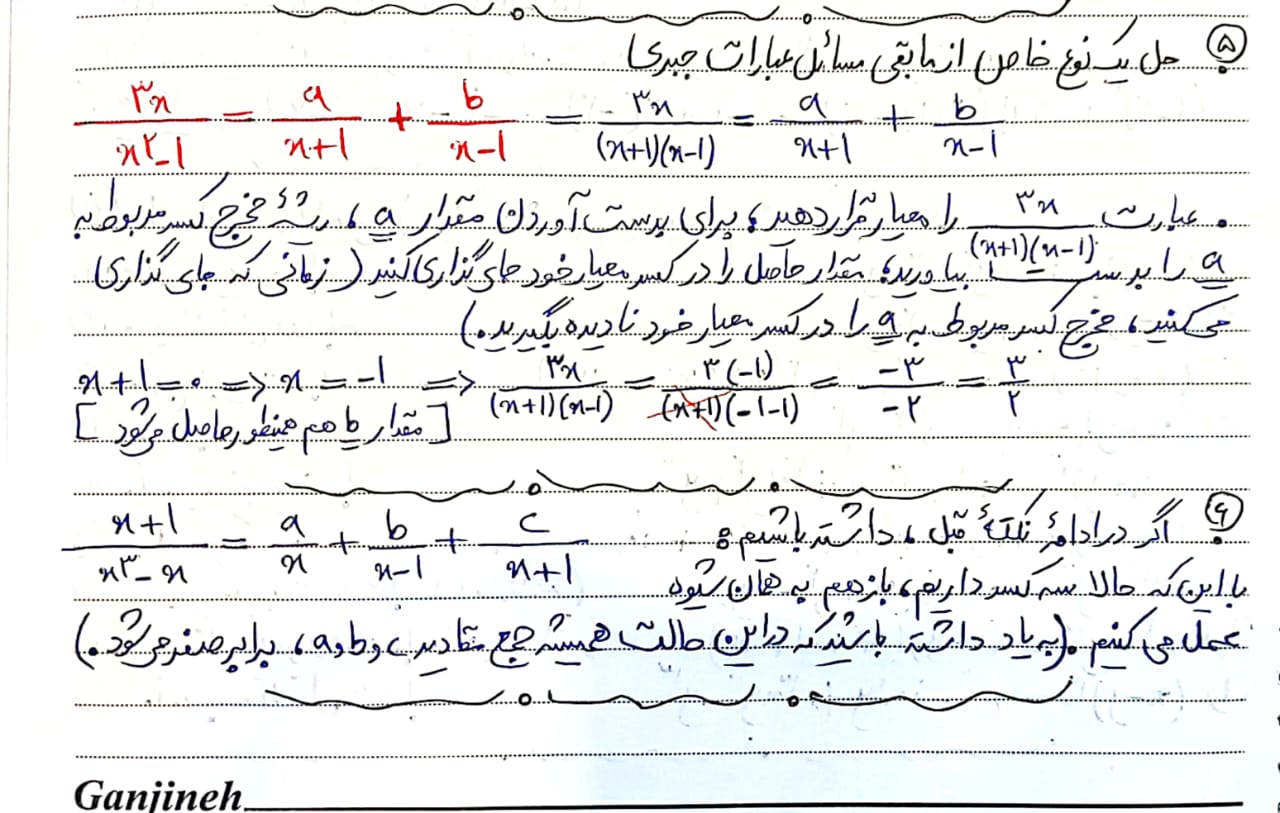 ۵. حل یک نوع خاص از مابقی مسائل عبارات جبری
۳x/(x۲-1) = a/(x+1) + b/(x-1) = ۳x/((x+1)(x-1)) = a/(x+1) + b/(x-1)
. عبارت ۳x/((x+1)(x-1)) را معیار قرار دهید؛ برای بدست آوردن مقدار a، ریشهٔ مخرج کسر مربوط به
a را بدست بیاورید؛ مقدار حاصل را در کسر معیار خود جای گذاری کنید (زمانی که جای گذاری
می کنید، مخرج کسر مربوط به a را در کسر معیار خود نادیده بگیرید.)
x+1=۰ => x=-1 => ۳x/((x+1)(x-1)) = ۳(-1)/((x+1)(-1-1)) = -۳/-۲ = ۳/۲
[مقدار b هم همینطور حاصل می شود]
۶. اگر در ادامهٔ نکتهٔ قبل، داشته باشیم: (x+1)/(x۳-x) = a/x + b/(x-1) + c/(x+1)
با این که حالا سه کسر داریم، باز هم به همان شیوه
عمل می کنیم. (به یاد داشته باشید که در این حالت همیشه جمع مقادیر c و b و a، برابر صفر می شود.)
Ganjineh